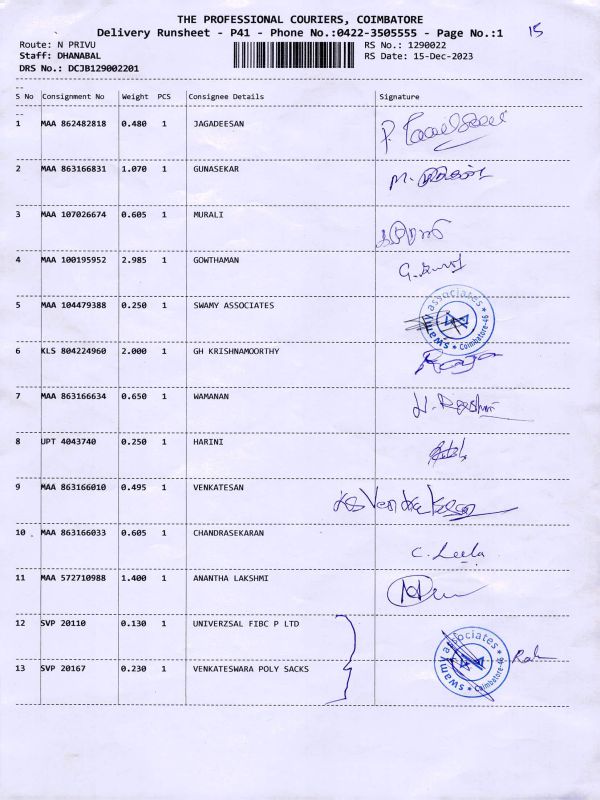 THE PROFESSIONAL COURIERS, COIMBATORE
Delivery Runsheet - P41 - Phone No.:0422-3505555 - Page No.:1 15
Route: N PRIVU RS No.: 1290022
Staff: DHANABAL RS Date: 15-Dec-2023
DRS No.: DCJB129002201
--
S No Consignment No Weight PCS Consignee Details Signature
--
1 MAA 862482818 0.480 1 JAGADEESAN
2 MAA 863166831 1.070 1 GUNASEKAR M.
3 MAA 107026674 0.605 1 MURALI
4 MAA 100195952 2.985 1 GOWTHAMAN G.
5 MAA 104479388 0.250 1 SWAMY ASSOCIATES swamy associates * Coimbatore-46 *
6 KLS 804224960 2.000 1 GH KRISHNAMOORTHY
7 MAA 863166634 0.650 1 WAMANAN
8 UPT 4043740 0.250 1 HARINI
9 MAA 863166010 0.495 1 VENKATESAN
10 MAA 863166033 0.605 1 CHANDRASEKARAN C. Leela
11 MAA 572710988 1.400 1 ANANTHA LAKSHMI
12 SVP 20110 0.130 1 UNIVERZSAL FIBC P LTD
13 SVP 20167 0.230 1 VENKATESWARA POLY SACKS swamy associates * Coimbatore-46 *